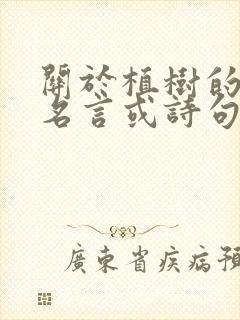 關於植樹的
名言或詩句
廣東省疾病預